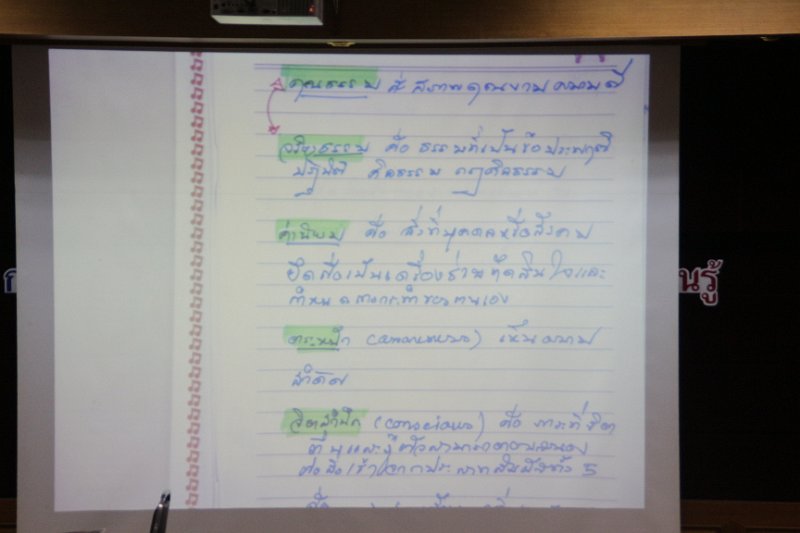 คุณธรรม คือ สภาพคุณงามความดี
จริยธรรม คือ ธรรมที่เป็นข้อประพฤติ
ปฏิบัติ ศีลธรรม กฎศีลธรรม
ค่านิยม คือ สิ่งที่บุคคลหรือสังคม
ยึดถือเป็นเครื่องช่วยตัดสินใจและ
กำหนดการกระทำของตนเอง
ตระหนัก (awareness) เห็นความ
สำคัญ
จิตสำนึก (conscious) คือ ภาวะที่จิต
ตื่นและรู้ตัวสามารถตอบสนอง
ต่อสิ่งเร้าจากประสาทสัมผัสทั้ง 5
นรู้